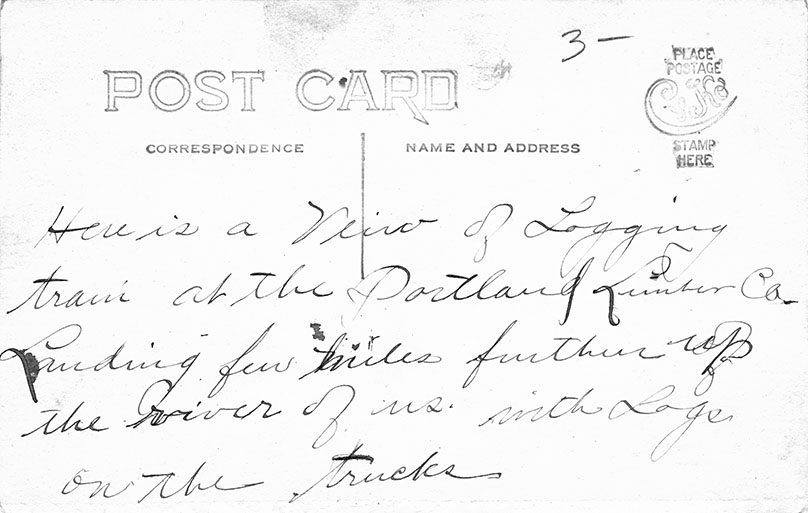 3-
PLACE
POSTAGE
STAMP
HERE
POST CARD
CORRESPONDENCE
NAME AND ADDRESS
Here is a Veiw of Logging
train at the Portland Lumber Co.
Landing few miles further up
the river of us. with Logs
on the trucks